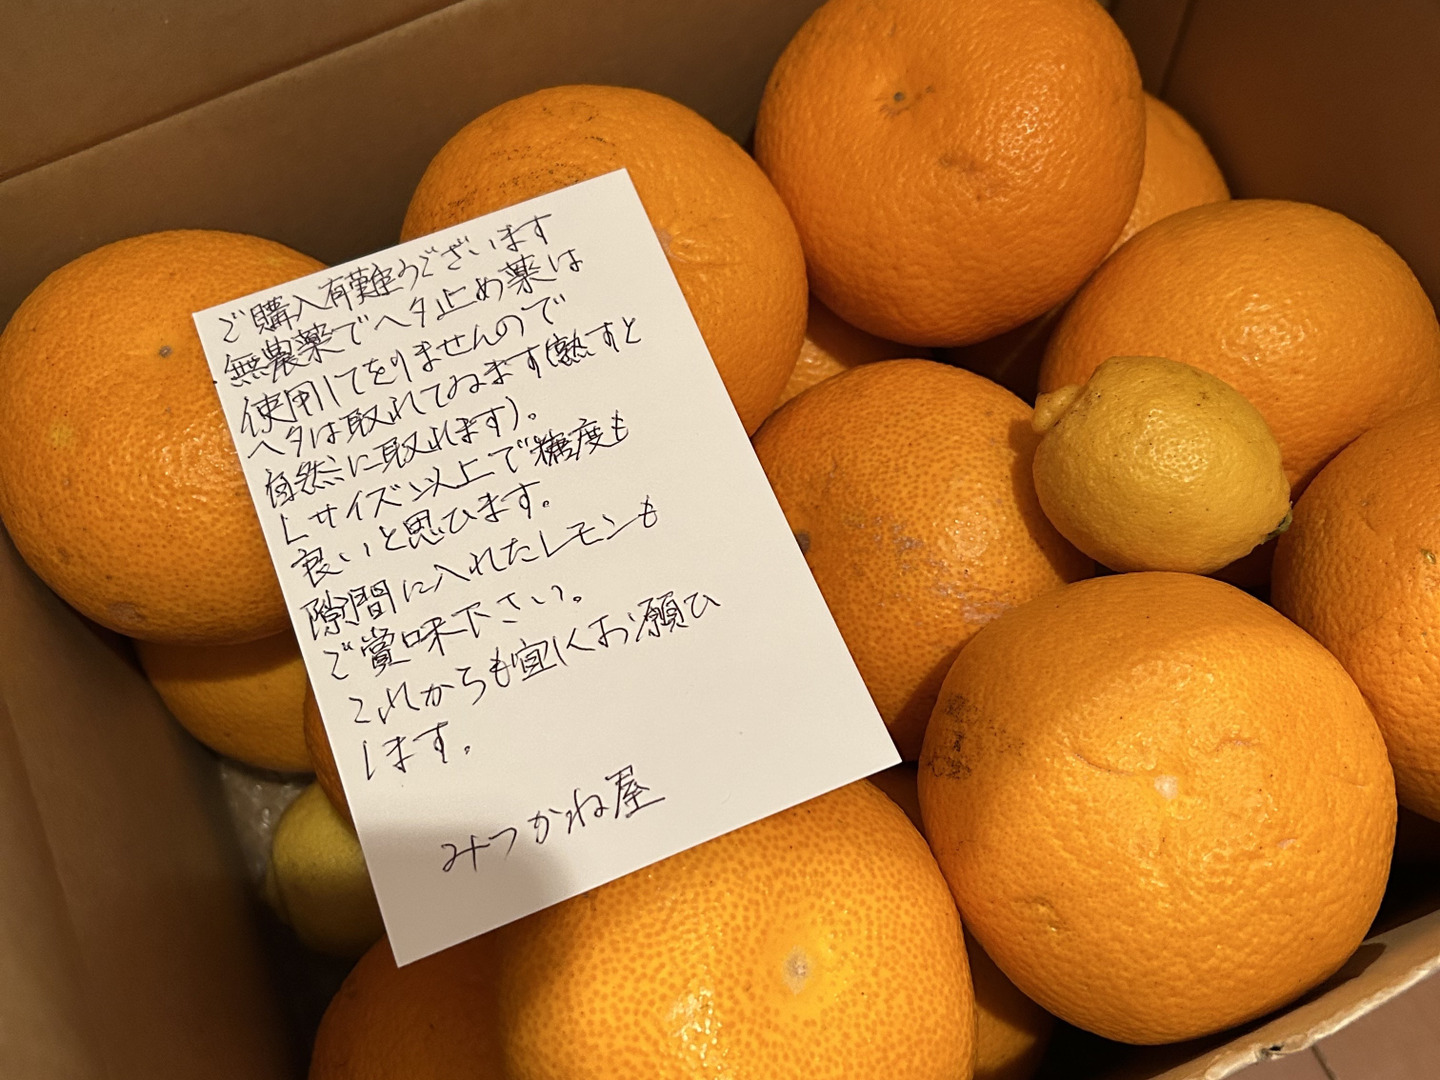 ご購入有難うございます
無農薬でヘタ止め薬は
使用してをりませんので
ヘタは取れております(熟すと
自然に取れます)。
Lサイズ以上で糖度も
良いと思ひます。
隙間に入れたレモンも
ご賞味下さい。
これからも宜しくお願ひ
します。
みつかね屋